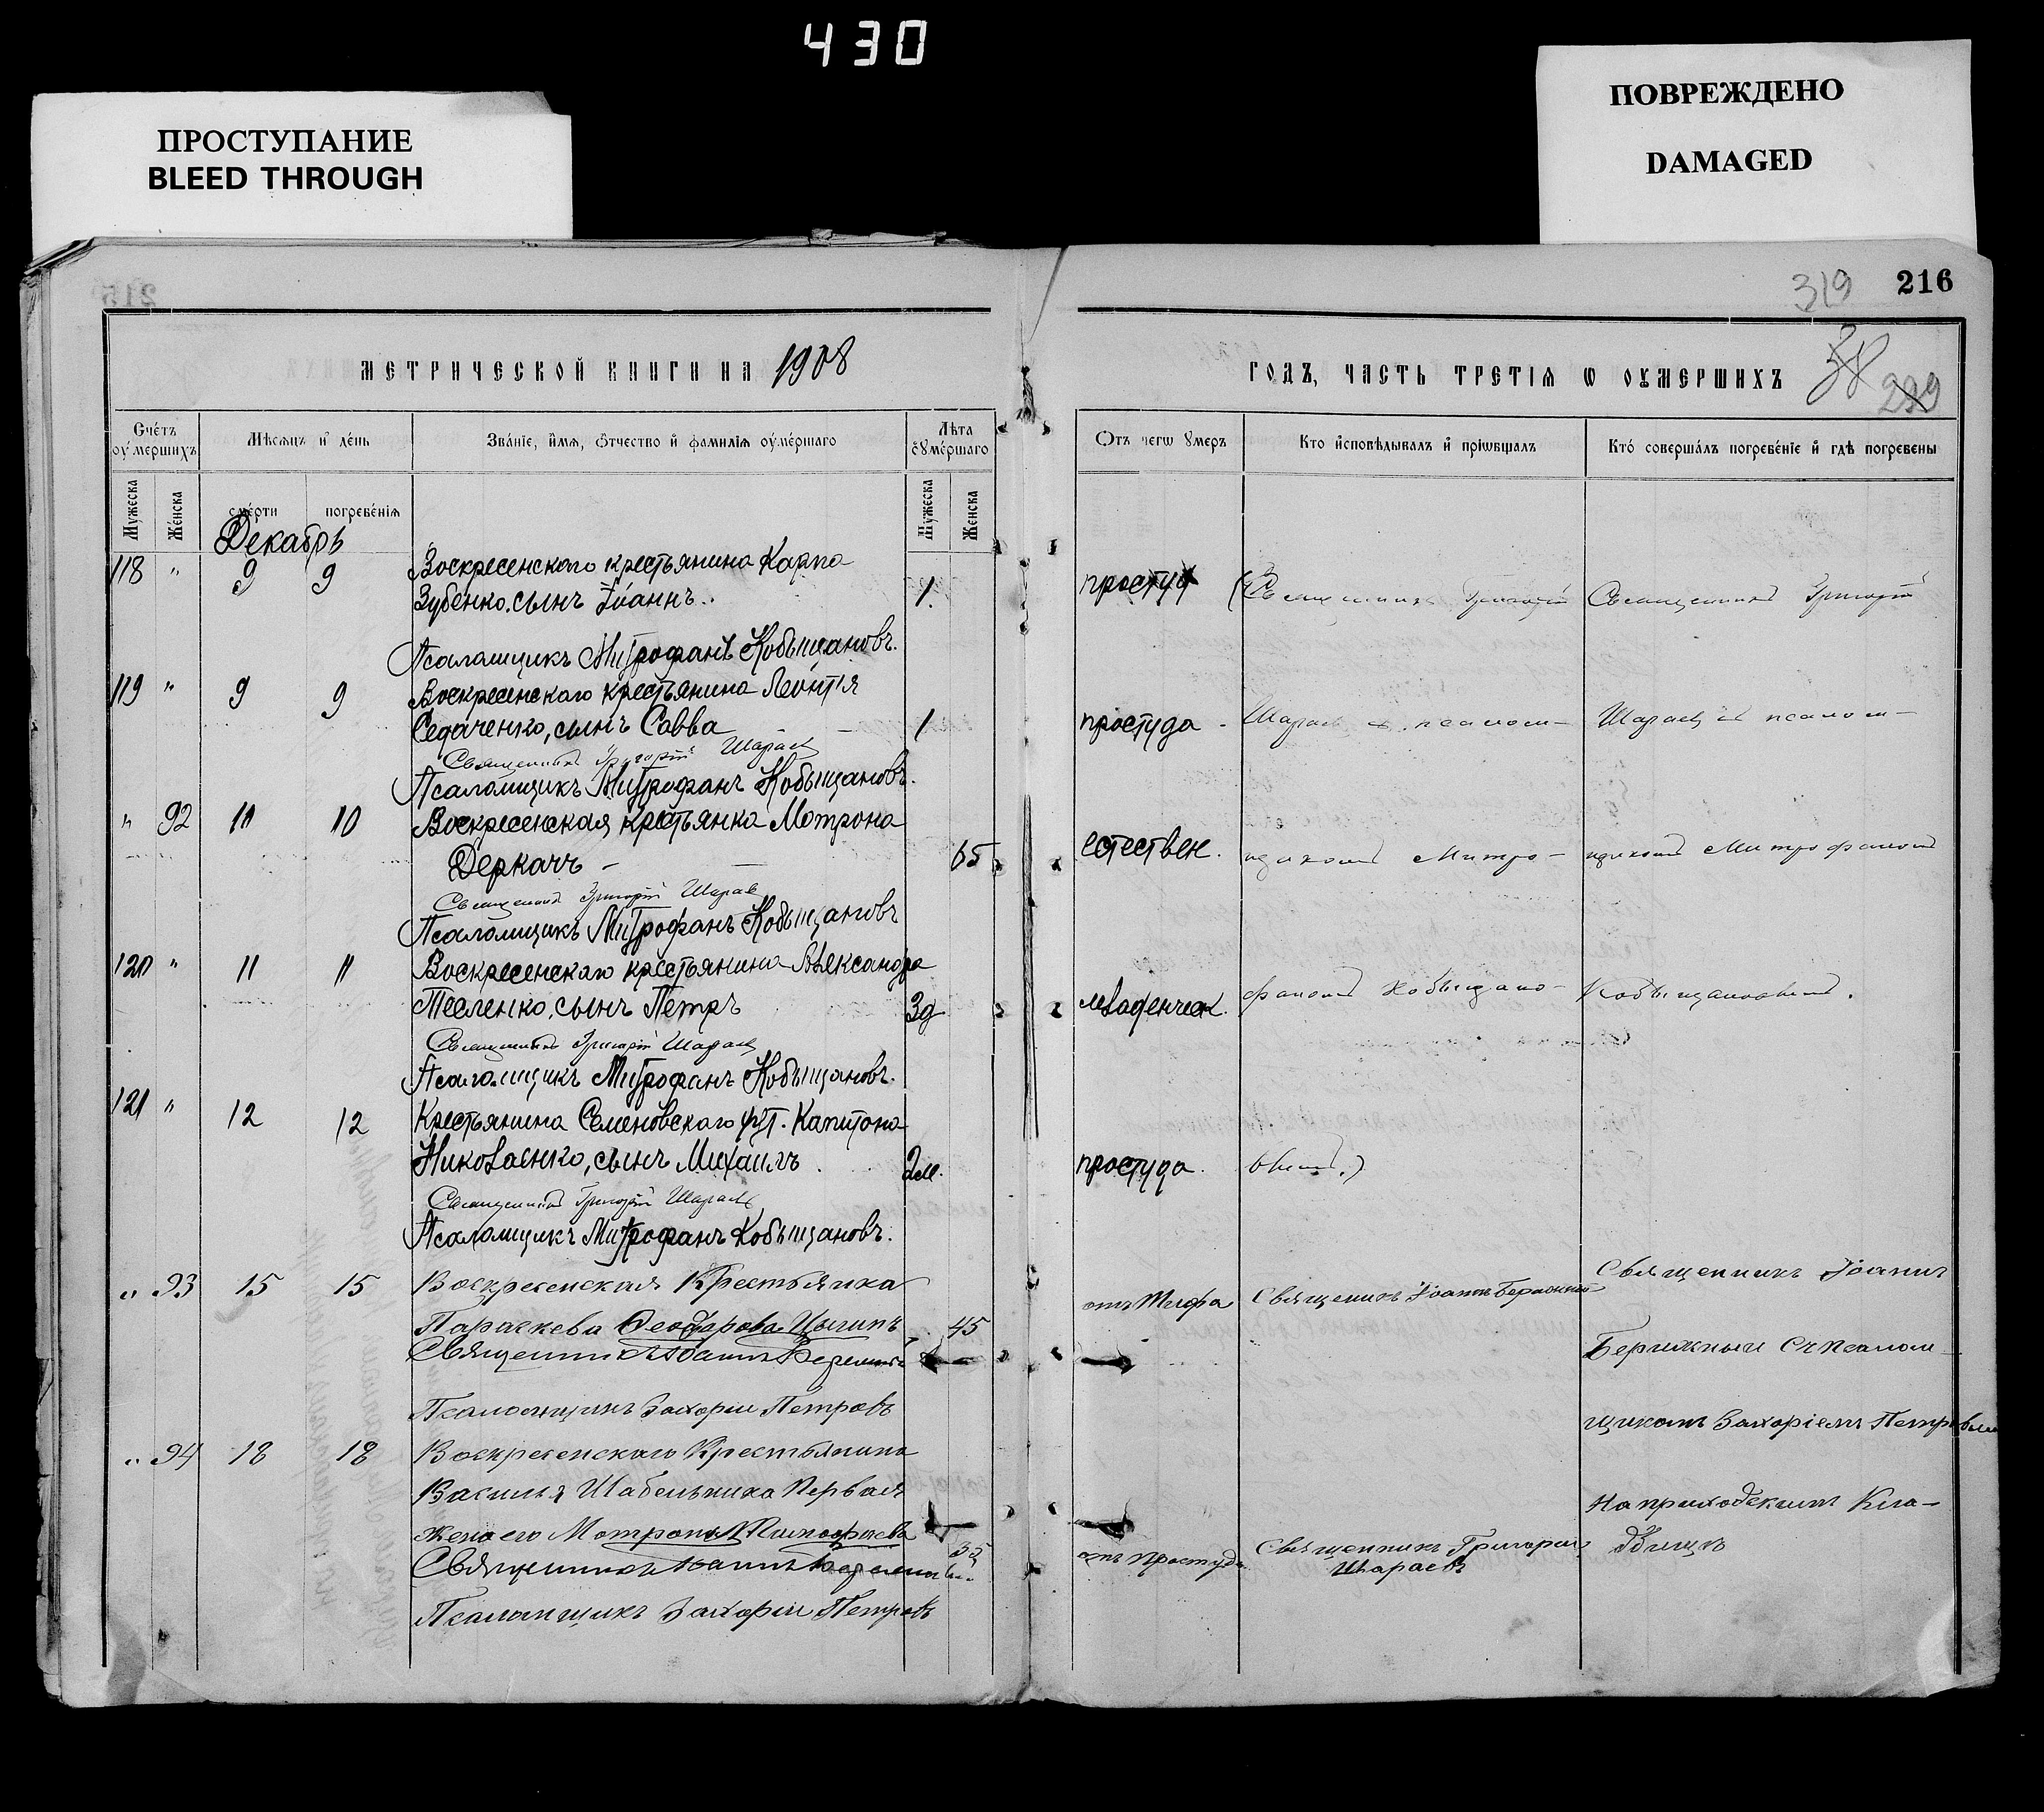 430
ПРОСТУПАНИЕ
BLEED THROUGH
ПОВРЕЖДЕНО
DAMAGED
319 216
МЕТРИЧЕСКОЙ КНИГИ НА 1908
ГОДЪ, ЧАСТЬ ТРЕТІЯ Ѡ ОУМЕРШИХЪ 38 299
Счétъ оумершихъ
Мѣсяцъ и день
Званіе, имя, отчество и фамилія оумершаго
Лѣта оумершаго
Мужеска
Женска
смерти
погребенія
Мужеска
Женска
Ѿтъ чегѡ умеръ
Кто исповѣдывалъ и пріѡбщалъ
Кто совершалъ погребеніе и гдѣ погребены
Декабрь
118 " 9 9 Воскресенскаго крестьянина Карпа
Зубенко, сынъ Іоаннъ. 1.
простуд (Священникъ Григорій
Священникъ Григорій
Псаломщикъ Митрофанъ Кобыщановъ.
119 " 9 9 Воскресенскаго крестьянина Леонтія
Седаченко, сынъ Савва 1
простуда Шараевъ съ псалом-
Шараевъ съ псалом-
Священникъ Григорій Шараевъ
Псаломщикъ Митрофанъ Кобыщановъ.
" 92 10 Воскресенская крестьянка Мотрона
Деркачъ 65
естествен. щикомъ Митро-
щикомъ Митрофаномъ
Священникъ Григорій Шараевъ
Псаломщикъ Митрофанъ Кобыщановъ
120 " 11 11 Воскресенскаго крестьянина Александра
Тесленко, сынъ Петръ 3д
младенческ. фаномъ Кобыщано-
Кобыщановымъ.
Священникъ Григорій Шараевъ
Псаломщикъ Митрофанъ Кобыщановъ.
121 " 12 12 Крестьянина Семеновскаго хут. Капитона
Николаенко, сынъ Михаилъ 2м.
простуда. вымъ.)
Священникъ Григорій Шараевъ
Псаломщикъ Митрофанъ Кобыщановъ.
" 93 15 15 Воскресенская Крестьянка
Параскева Феодорова Цыгипъ 45
отъ Тифа Священикъ Іоаннъ
Священникъ Іоаннъ
Священникъ Іоаннъ
съ Псалом-
Псаломщикъ Захарій Петровъ
щикомъ Захаріемъ Петровым
" 94 18 18 Воскресенскаго Крестьянина
Василья Шабельника Первая
На приходскимъ Кла-
жена его Мотрона Тимофеева 32
отъ Простуды Священникъ Григорій
Шараевъ
дбищѣ
Священникъ Іоаннъ
Псаломщикъ Захарій Петровъ